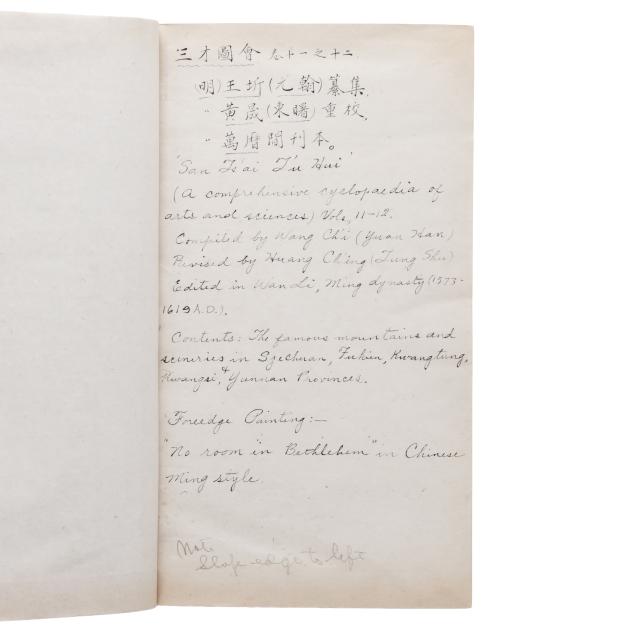 三才圖會 卷十一之十二
(明)王圻(元翰)纂集.
" 黃晟(東曙)重校.
" 萬曆間刊本。
'San Ts'ai T'u Hui'
(A comprehensive cyclopaedia of
arts and sciences) Vols, 11-12.
Compiled by Wang Ch'i (Yuan Han)
Revised by Huang Ch'ing (Tung Shu)
Edited in Wan Li, Ming dynasty (1573-
1619 A.D.).
Contents: The famous mountains and
sceneries in Szechuan, Fukien, Kwangtung,
Kwangsi, & Yunnan Provinces.
Foreedge Painting:—
"No room "in Bethlehem" in Chinese
Ming style.
Note
Slope edge to left